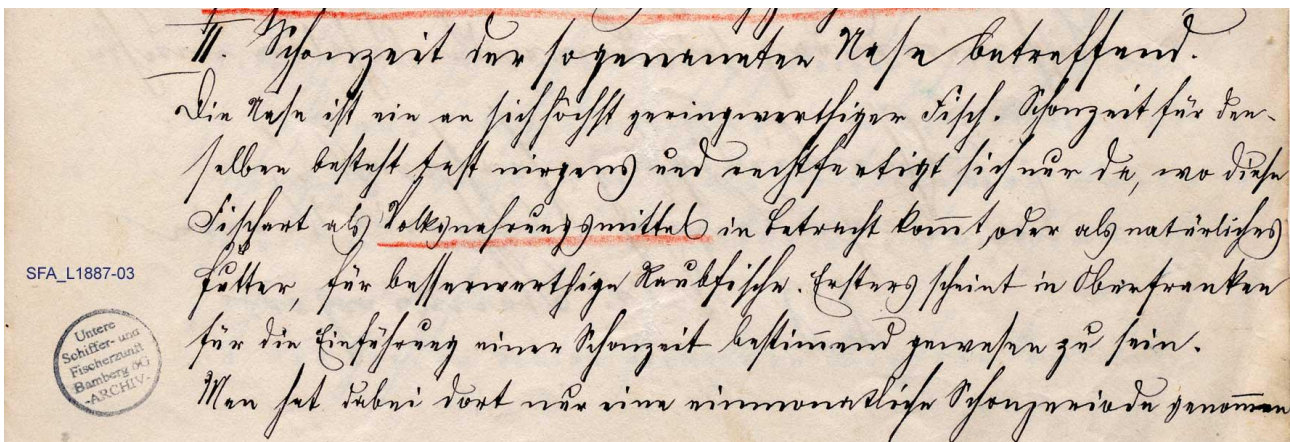 II. Schonzeit der sogenannten Nase betreffend.
Die Nase ist ein an sich höchst geringwerthiger Fisch. Schonzeit für den-
selben besteht fast nirgens und rechtfertigt sich nur da, wo diese
Fischart als Volksnahrungsmittel in Betracht kom̅t, oder als natürliches
Futter, für besserwerthige Raubfische. Ersters scheint in Oberfranken
für die Einführung einer Schonzeit bestim̅end gewesen zu sein.
Man hat dabei dort nur eine einmonatliche Schonperiode genom̅en
SFA_L1887-03
Untere
Schiffer- und
Fischerzunft
Bamberg öG
-ARCHIV-